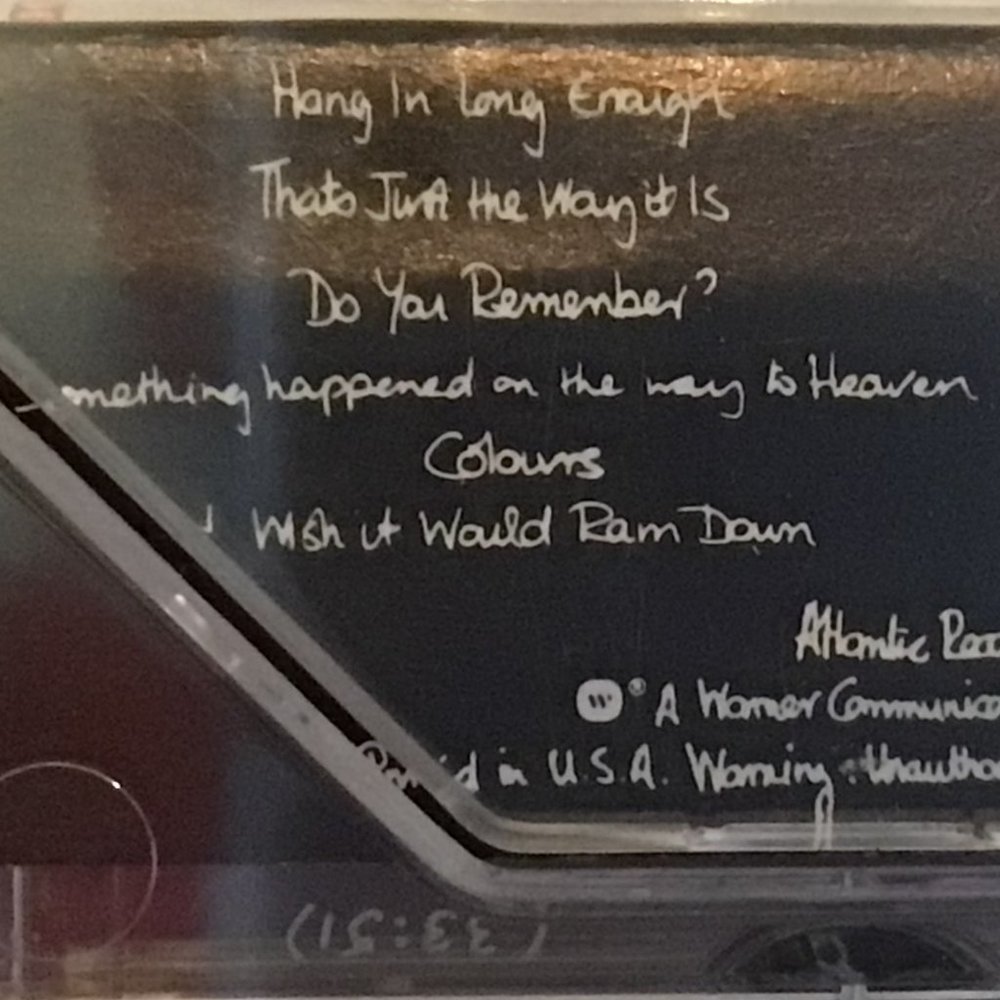 Hang In Long Enough
Thats Just the Way it Is
Do You Remember?
omething happened on the way to Heaven
Colours
I Wish it Would Rain Down
Atlantic
® A Warner
in U.S.A. Warning:
(33:51)